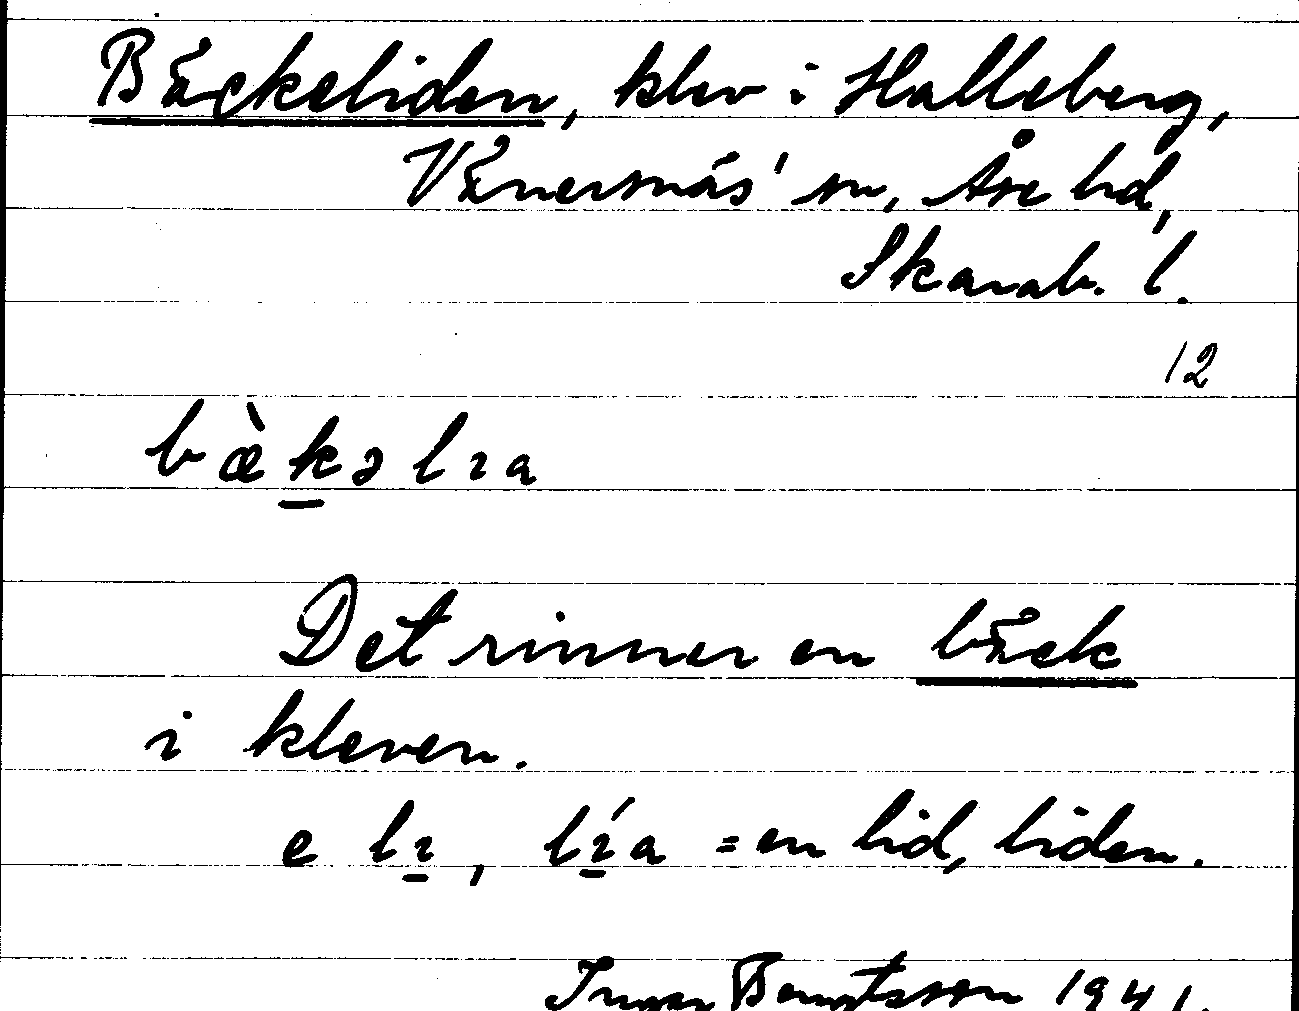 Bäckeliden, klev i Halleberg,
Vänersnäs' sn, Åse hd,
Skarab. l.
12
bæ̀k̲ə lɩa
Det rinner en bäck
i kleven.
e lɩ̲, lɩ̲́a = en lid, liden.
Ingvar Bengtsson 1941.